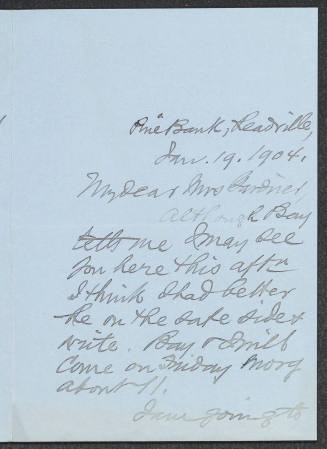 Pine Bank, Readville,
Jan. 19. 1904.
My dear Mrs Gardner,
Although Bay
tells me I may see
you here this aftn
I think I had better
be on the safe side &
write. Bay & I will
come on Friday morg
about 11.
I am going to